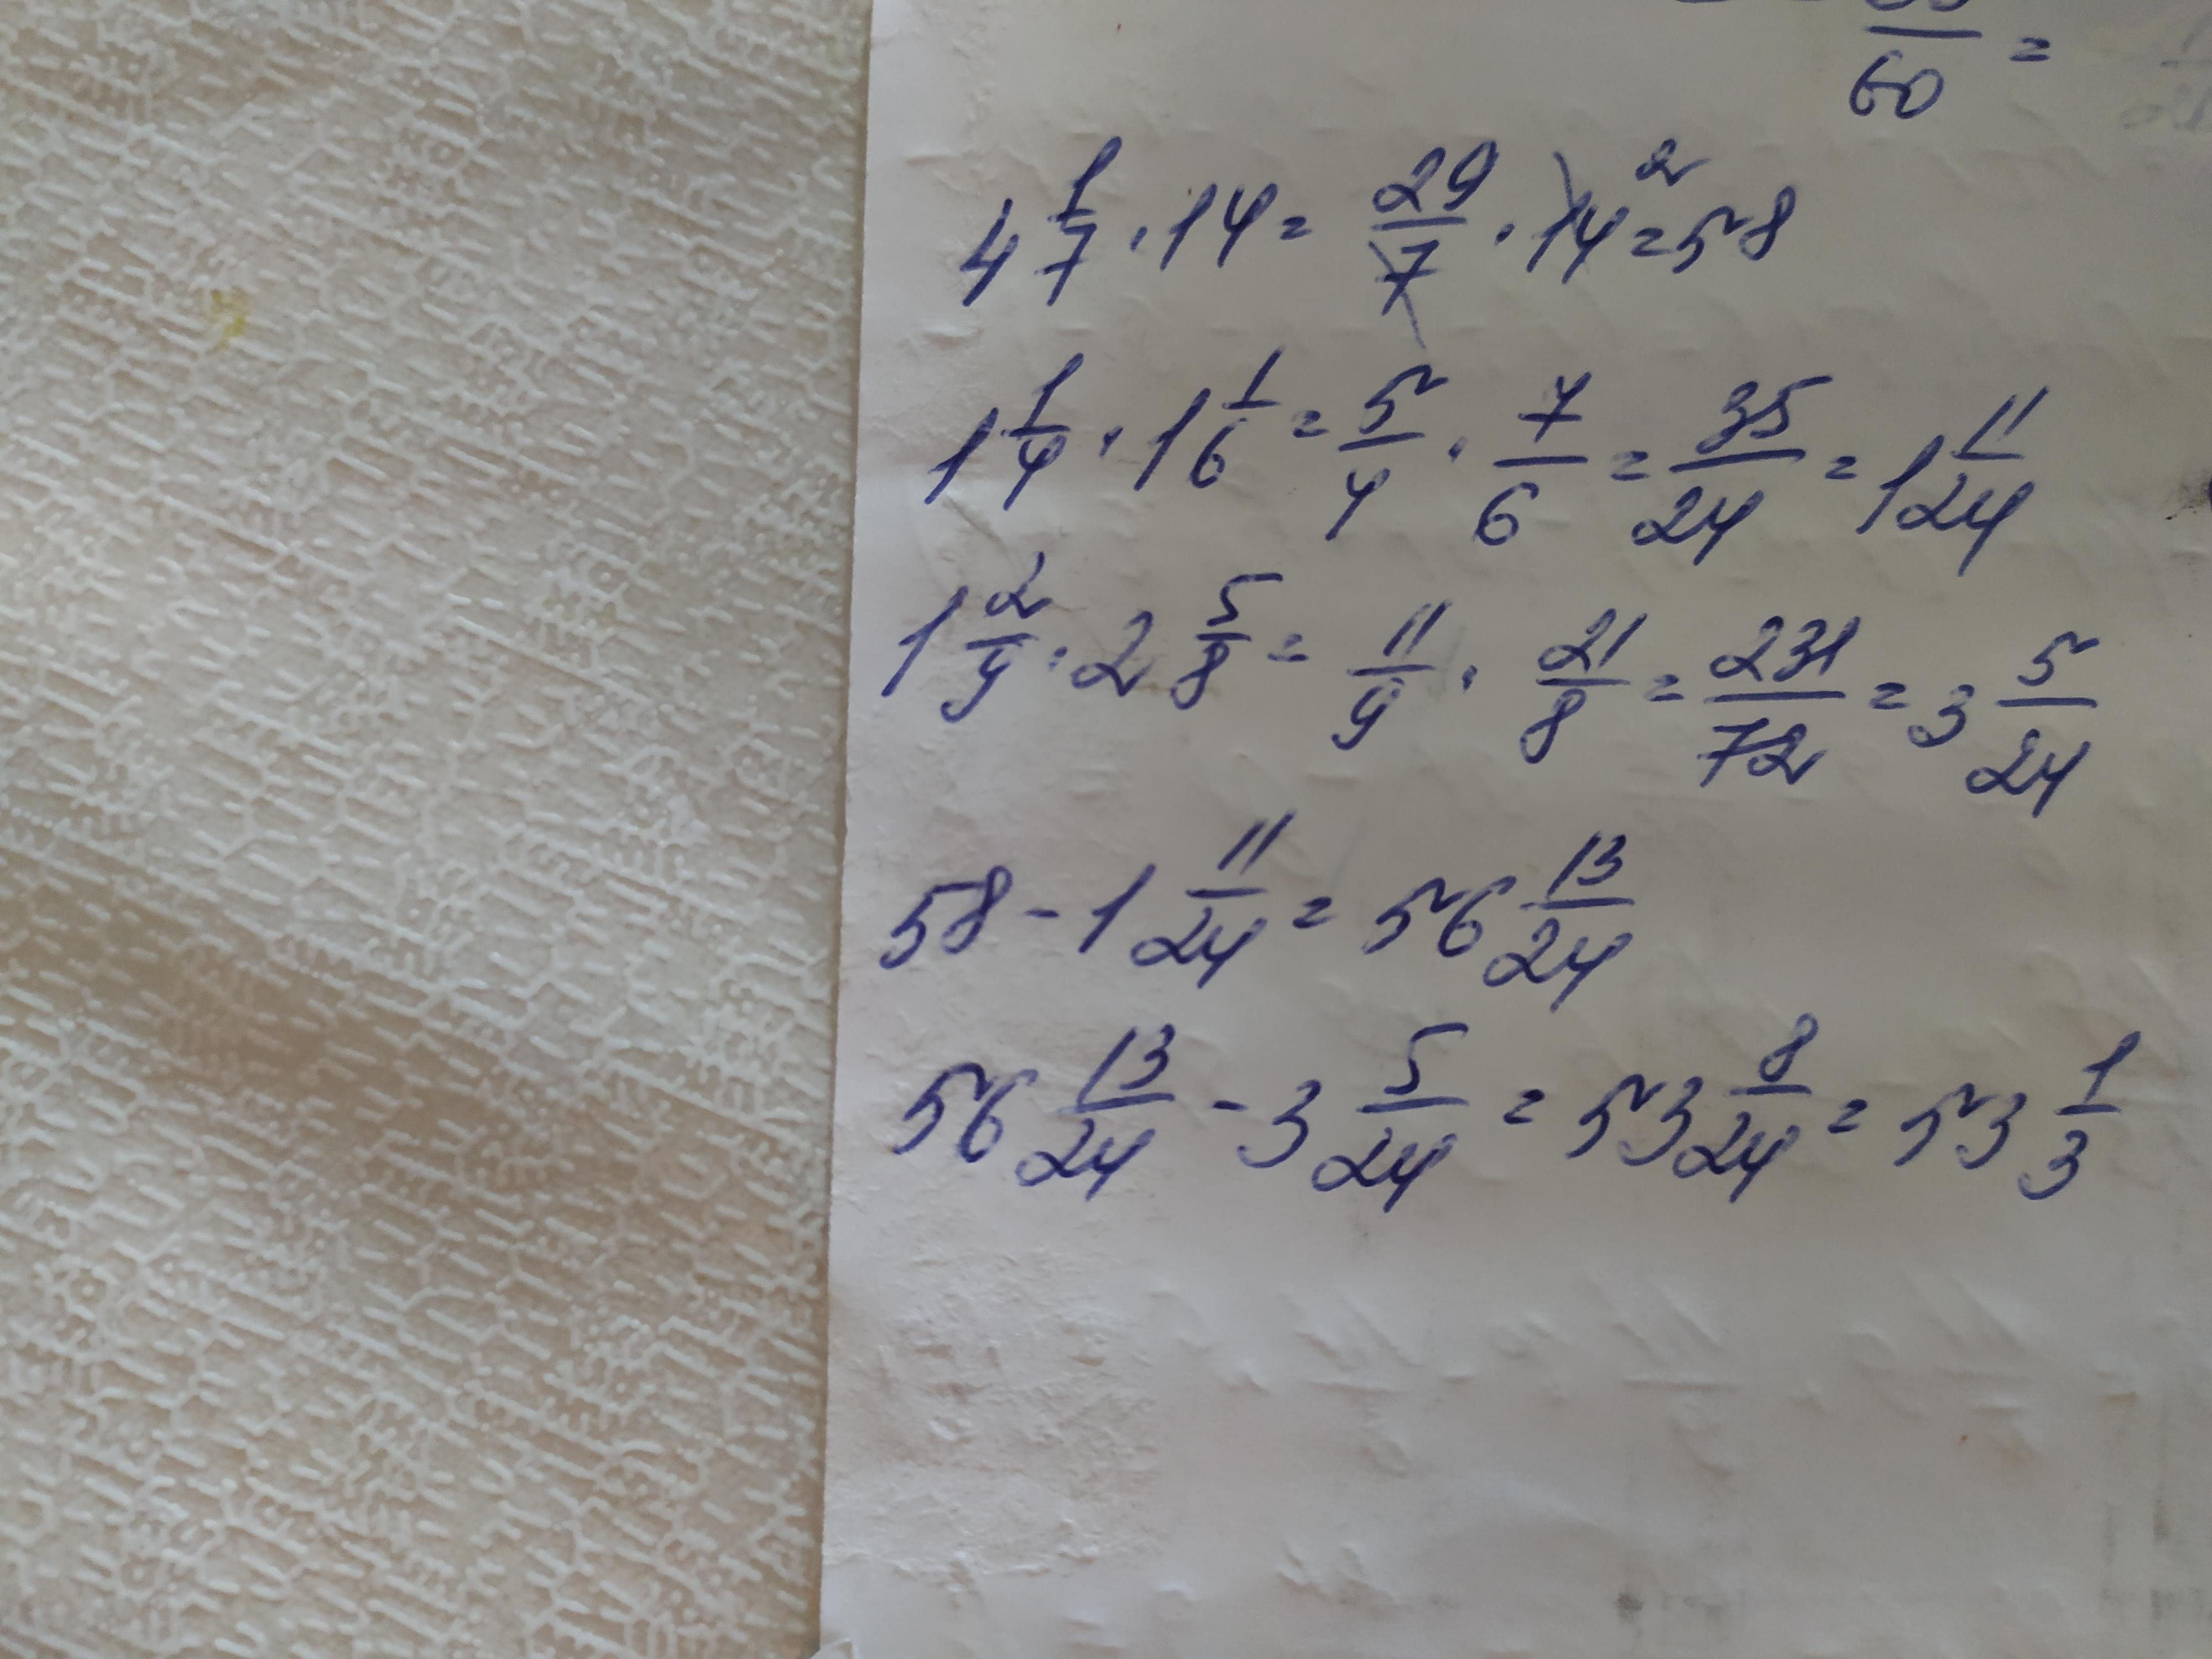 /60 =
4 1/7 · 14 = 29/7 · 14 2 = 58
1 1/4 · 1 1/6 = 5/4 · 7/6 = 35/24 = 1 11/24
1 2/9 · 2 5/8 = 11/9 · 21/8 = 231/72 = 3 5/24
58 - 1 11/24 = 56 13/24
56 13/24 - 3 5/24 = 53 8/24 = 53 1/3